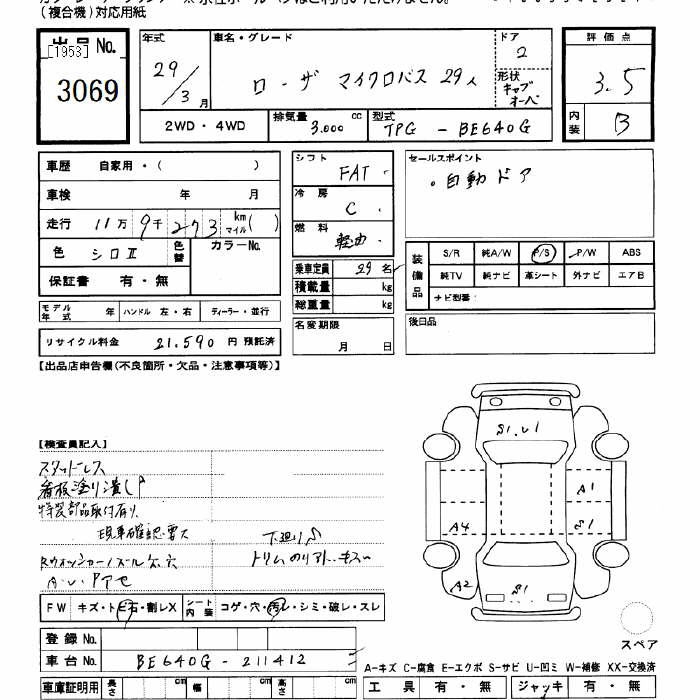 (複合機)対応用紙
出品 No.
[1953]
3069
年式 29/3月
車名・グレード ローザ マイクロバス 29人
ドア 2
形状 キャブオーバ
評価点 3.5
内装 B
2WD・4WD
排気量 3.000 cc
型式 TPG - BE640G
車歴 自家用・( )
車検 年 月
走行 11万9千273 km マイル( )
色 シロⅡ 色替 カラーNo.
保証書 有・無
シフト FAT
冷房 C
燃料 軽油
乗車定員 29名
積載量 kg
総重量 kg
名変期限 月 日
セールスポイント
・自動ドア
装備品 S/R 純A/W P/S P/W ABS
純TV 純ナビ 革シート 外ナビ エアB
ナビ型番:
後日品
モデル年式 年 ハンドル 左・右 ディーラー・並行
リサイクル料金 21,590 円 預託済
【出品店申告欄(不良箇所・欠品・注意事項等)】
【検査員記入】
スタッドレス
看板塗り潰しP
特装部品取付有り
現車確認要ス
下廻りS
Rウォッシャーノズル欠、穴
トリム
A・U・Pアセ
S1.U1
A1
A4
S1
A2
S1
スペア
FW キズ・トビ石・割レX シート内装 コゲ・穴・汚レ・シミ・破レ・スレ
登録 No.
車台 No. BE640G - 211412
A-キズ C-腐食 E-エクボ S-サビ U-凹ミ W-補修 XX-交換済
車庫証明用 長さ cm 幅 cm 高さ cm
工具 有・無 ジャッキ 有・無